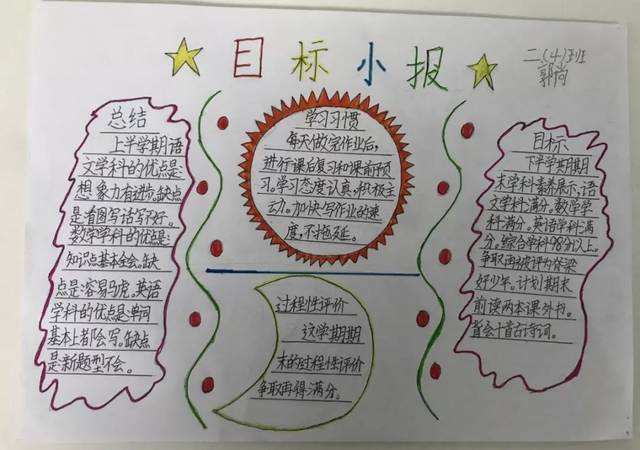 目标小报
二(4)班
郭尚
总结
上半学期语
文学科的优点是
想象力有进步,缺点
是看图写话写不好。
数学学科的优点是
知识点基本全会。缺
点是容易马虎。英语
学科的优点是单词
基本上都会写。缺点
是新题型不会。
学习习惯
每天做完作业后,
进行课后复习和课前预
习。学习态度认真,积极主
动。加快写作业的速
度,不拖延。
过程性评价
这学期期
末的过程性评价
争取再得满分。
目标
下半学期期
末学科素养展示,语
文学科满分。数学学
科满分。英语学科满
分。综合学科98分以上。
争取再被评为脊梁
好少年。计划期末
前读两本课外书。
背会十首古诗词。